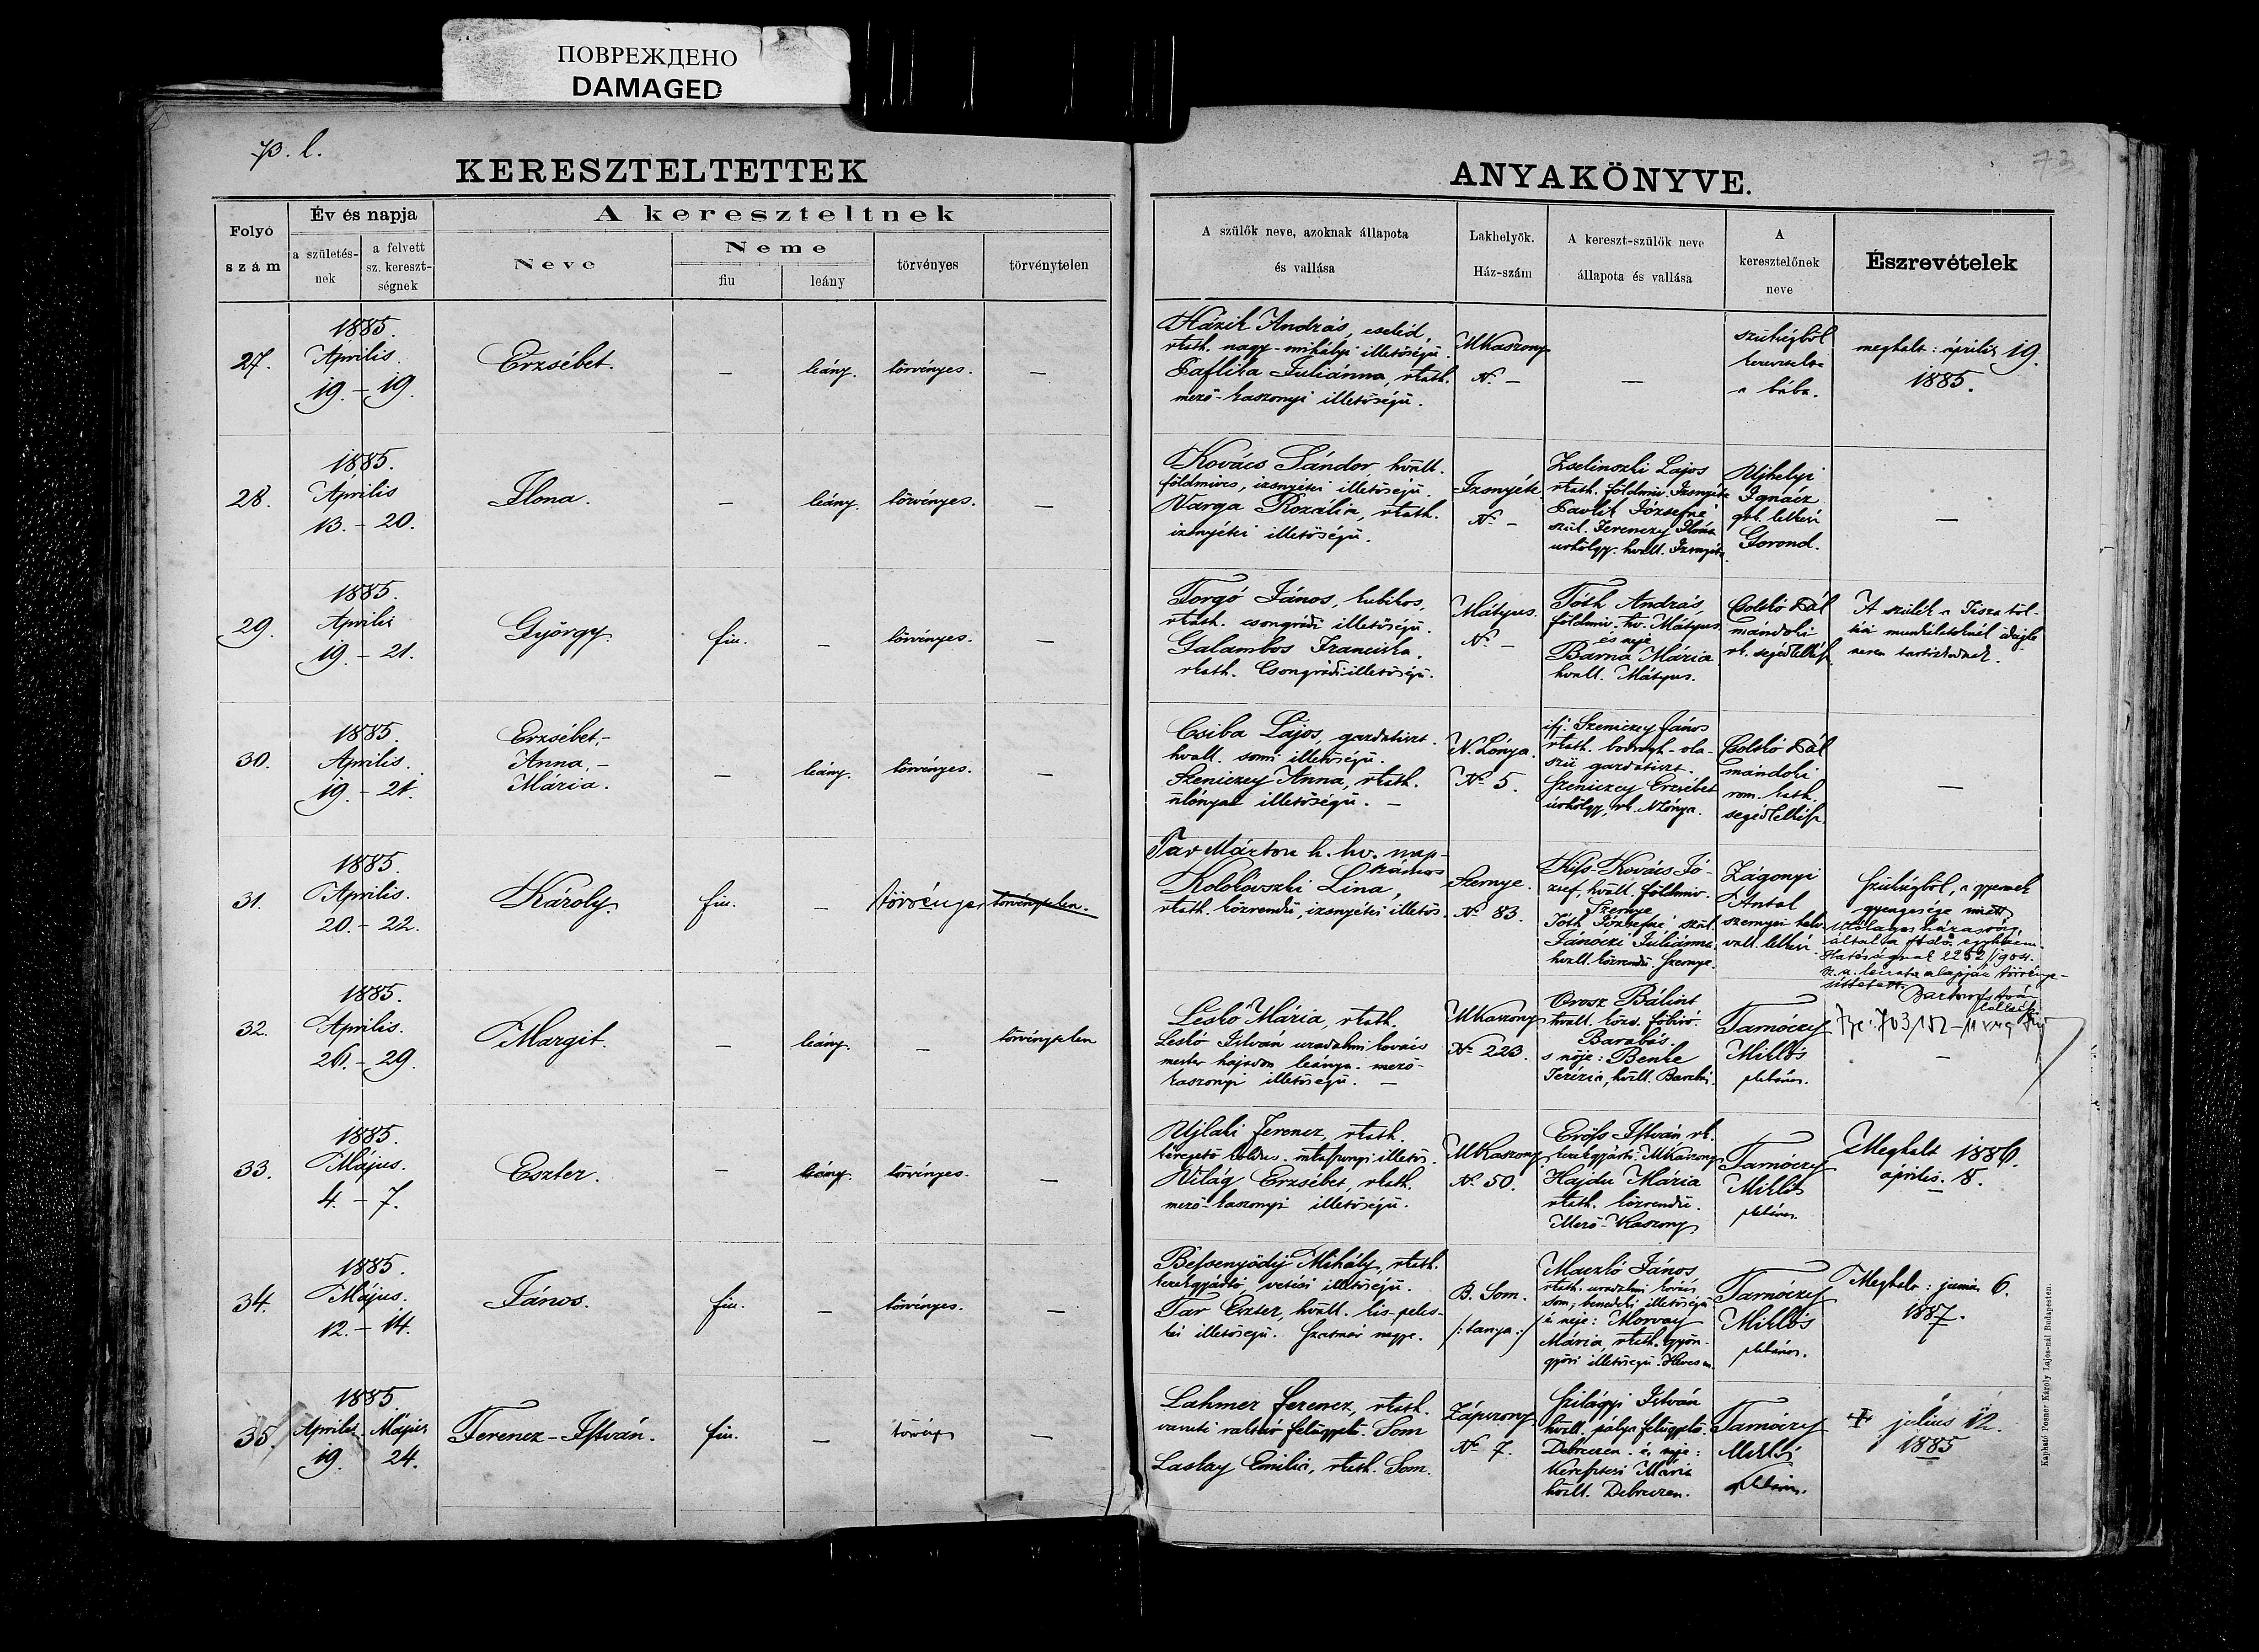 ПОВРЕЖДЕНО
DAMAGED
73. l.
73
KERESZTELTETTEK
ANYAKÖNYVE.
Folyó szám
Év és napja
a születés-
nek
a felvett
sz. kereszt-
ségnek
A kereszteltnek
Neve
Neme
fiu
leány
törvényes
törvénytelen
A szülők neve, azoknak állapota
és vallása
Lakhelyök.
Ház-szám
A kereszt-szülők neve
állapota és vallása
A
keresztelőnek
neve
Észrevételek
27.
1885.
Aprilis.
19. - 19.
Erzsébet.
—
leány.
törvényes.
—
Házik András, cseléd,
rkath. nagy-mihályi illetőségü.
Juliánna, rkath.
mező-kaszonyi illetőségü.
MKaszony
No. –
—
szükségből
a bába.
meghalt: április 19.
1885.
28.
1885.
Április
13. - 20.
Ilona.
—
leány.
törvényes.
—
Kovács Sándor hvall.
földmives, izsnyétei illetőségü.
Varga Rozália, rkath.
izsnyétei illetőségü.
Izsnyéte.
No. –
Zselinszki Lajos
rkath. földmiv. Izsnyéte
Pavlik Józsefné
szül. Ferenczy Ilona
urhölgy. hvall. Izsnyéte
Ujhelyi
Ignácz
gk. lelkész
Gorond.
—
29.
1885.
Április
19. - 21.
György.
fiu.
—
törvényes.
—
Forgó János, kubikos,
rkath. csongrádi illetőségü.
Galambos Franciska,
rkath. Csongrádi illetőségü.
Mátyus.
No. –
Tóth András,
földmiv. hv. Mátyus
és neje
Barna Mária
hvall. Mátyus.
Pál
mándoki
rk. segédlelkész
A szülők a Tisza töl-
tési munkálatoknál
tartózkodnak.
30.
1885.
Aprilis.
19. - 21.
Erzsébet,-
Anna,-
Mária.
—
leány.
törvényes.
—
Csiba Lajos, gazdatiszt.
hvall. somi illetőségü.
Szeniczey Anna, rkath.
nlónyai illetőségü. –
N. Lónya.
No. 5.
ifj. Szeniczey János
rkath. bodrogh-ola-
szii gazdatiszt.
Szeniczey Erzsébet
urhölgy, rk. NLónya.
Pál
mándoki
rom. kath.
segédlelkész.
—
31.
1885.
Aprilis.
20. - 22.
Károly.
fiu.
—
törvényes
törvénytelen.
Tar Márton h. hv. nap-
számos
Kolohovszki Lina,
rkath. közrendü, izsnyétei illetős.
Szernye.
No. 83.
Kiss-Kovács Jó-
zsef, hvall. földmiv.
Szernye
Tóth Józsefné, szül.
Jánóczi Juliánna,
hvall. közrendü. Szernye.
Zágonyi
Antal
szernyei helv.
vall. lelkész.
Szükségből, a gyermek
gyengesége miatt
utólagos házasság
által a
2252/904.
sz. a. leirata alapján törvénye-
sittetett.
32.
1885.
Aprilis.
26. - 29.
Margit.
—
leány.
—
törvénytelen
Leskó Mária, rkath.
Leskó Istvan uradalmi kovács
mester hajadon leánya. mező-
kaszonyi illetőségü. –
MKaszony
No. 223.
Orosz Bálint
hvall. közs. főbiró.
Barabás.
s nője: Benke
Terézia, hvall. Barabás.
Tarnóczy
Miklós
plebános.
—
33.
1885.
Május.
4. - 7.
Eszter.
—
leány.
törvényes.
—
Ujlaki Ferenez, rkath.
kéregető koldus. mkaszonyi illetős.
Világ Erzsébet, rkath.
mező-kaszonyi illetőségü.
MKaszony
No. 50.
Erőss István, rk.
kerékgyártó. MKaszony
Hajdu Mária
rkath. közrendü.
Mező-Kaszony
Tarnóczy
Miklós
plebános.
Meghalt 1886.
április. 18.
34.
1885.
Május.
12. - 14.
János.
fiu.
—
törvényes.
—
Bessenyödij Mihály, rkath.
kerékgyártó, vetési illetőségü.
Tar Eszter, hvall. kis-peles-
kei illetőségü. Szatmár megye.
B. Som.
/: tanya :/
Maczkó János
rkath. uradalmi kovács
som, benedeki illetőségü
és neje: Morvay
Mária, rkath. gyön-
gyösi illetőségü. Heves m.
Tarnóczy
Miklós
plebános.
Meghalt: junius 6.
1887.
35.
1885.
Aprilis
19.
Május
24.
Ferencz-István.
fiu.
—
törvényes
—
Lahmer Ferencz, rkath.
vasuti raktár felügyelő. Som
Laslay Emilia, rkath. Som.
Zápszony
No. 7.
Szilágyi István
hvall. pálya felügyelő.
Debreczen. és neje:
Keresztesi Mária
hvall. Debreczen.
Tarnóczy
Miklós
plebános.
† julius 12.
1885
Kapható Posner Károly Lajos-nál Budapesten.